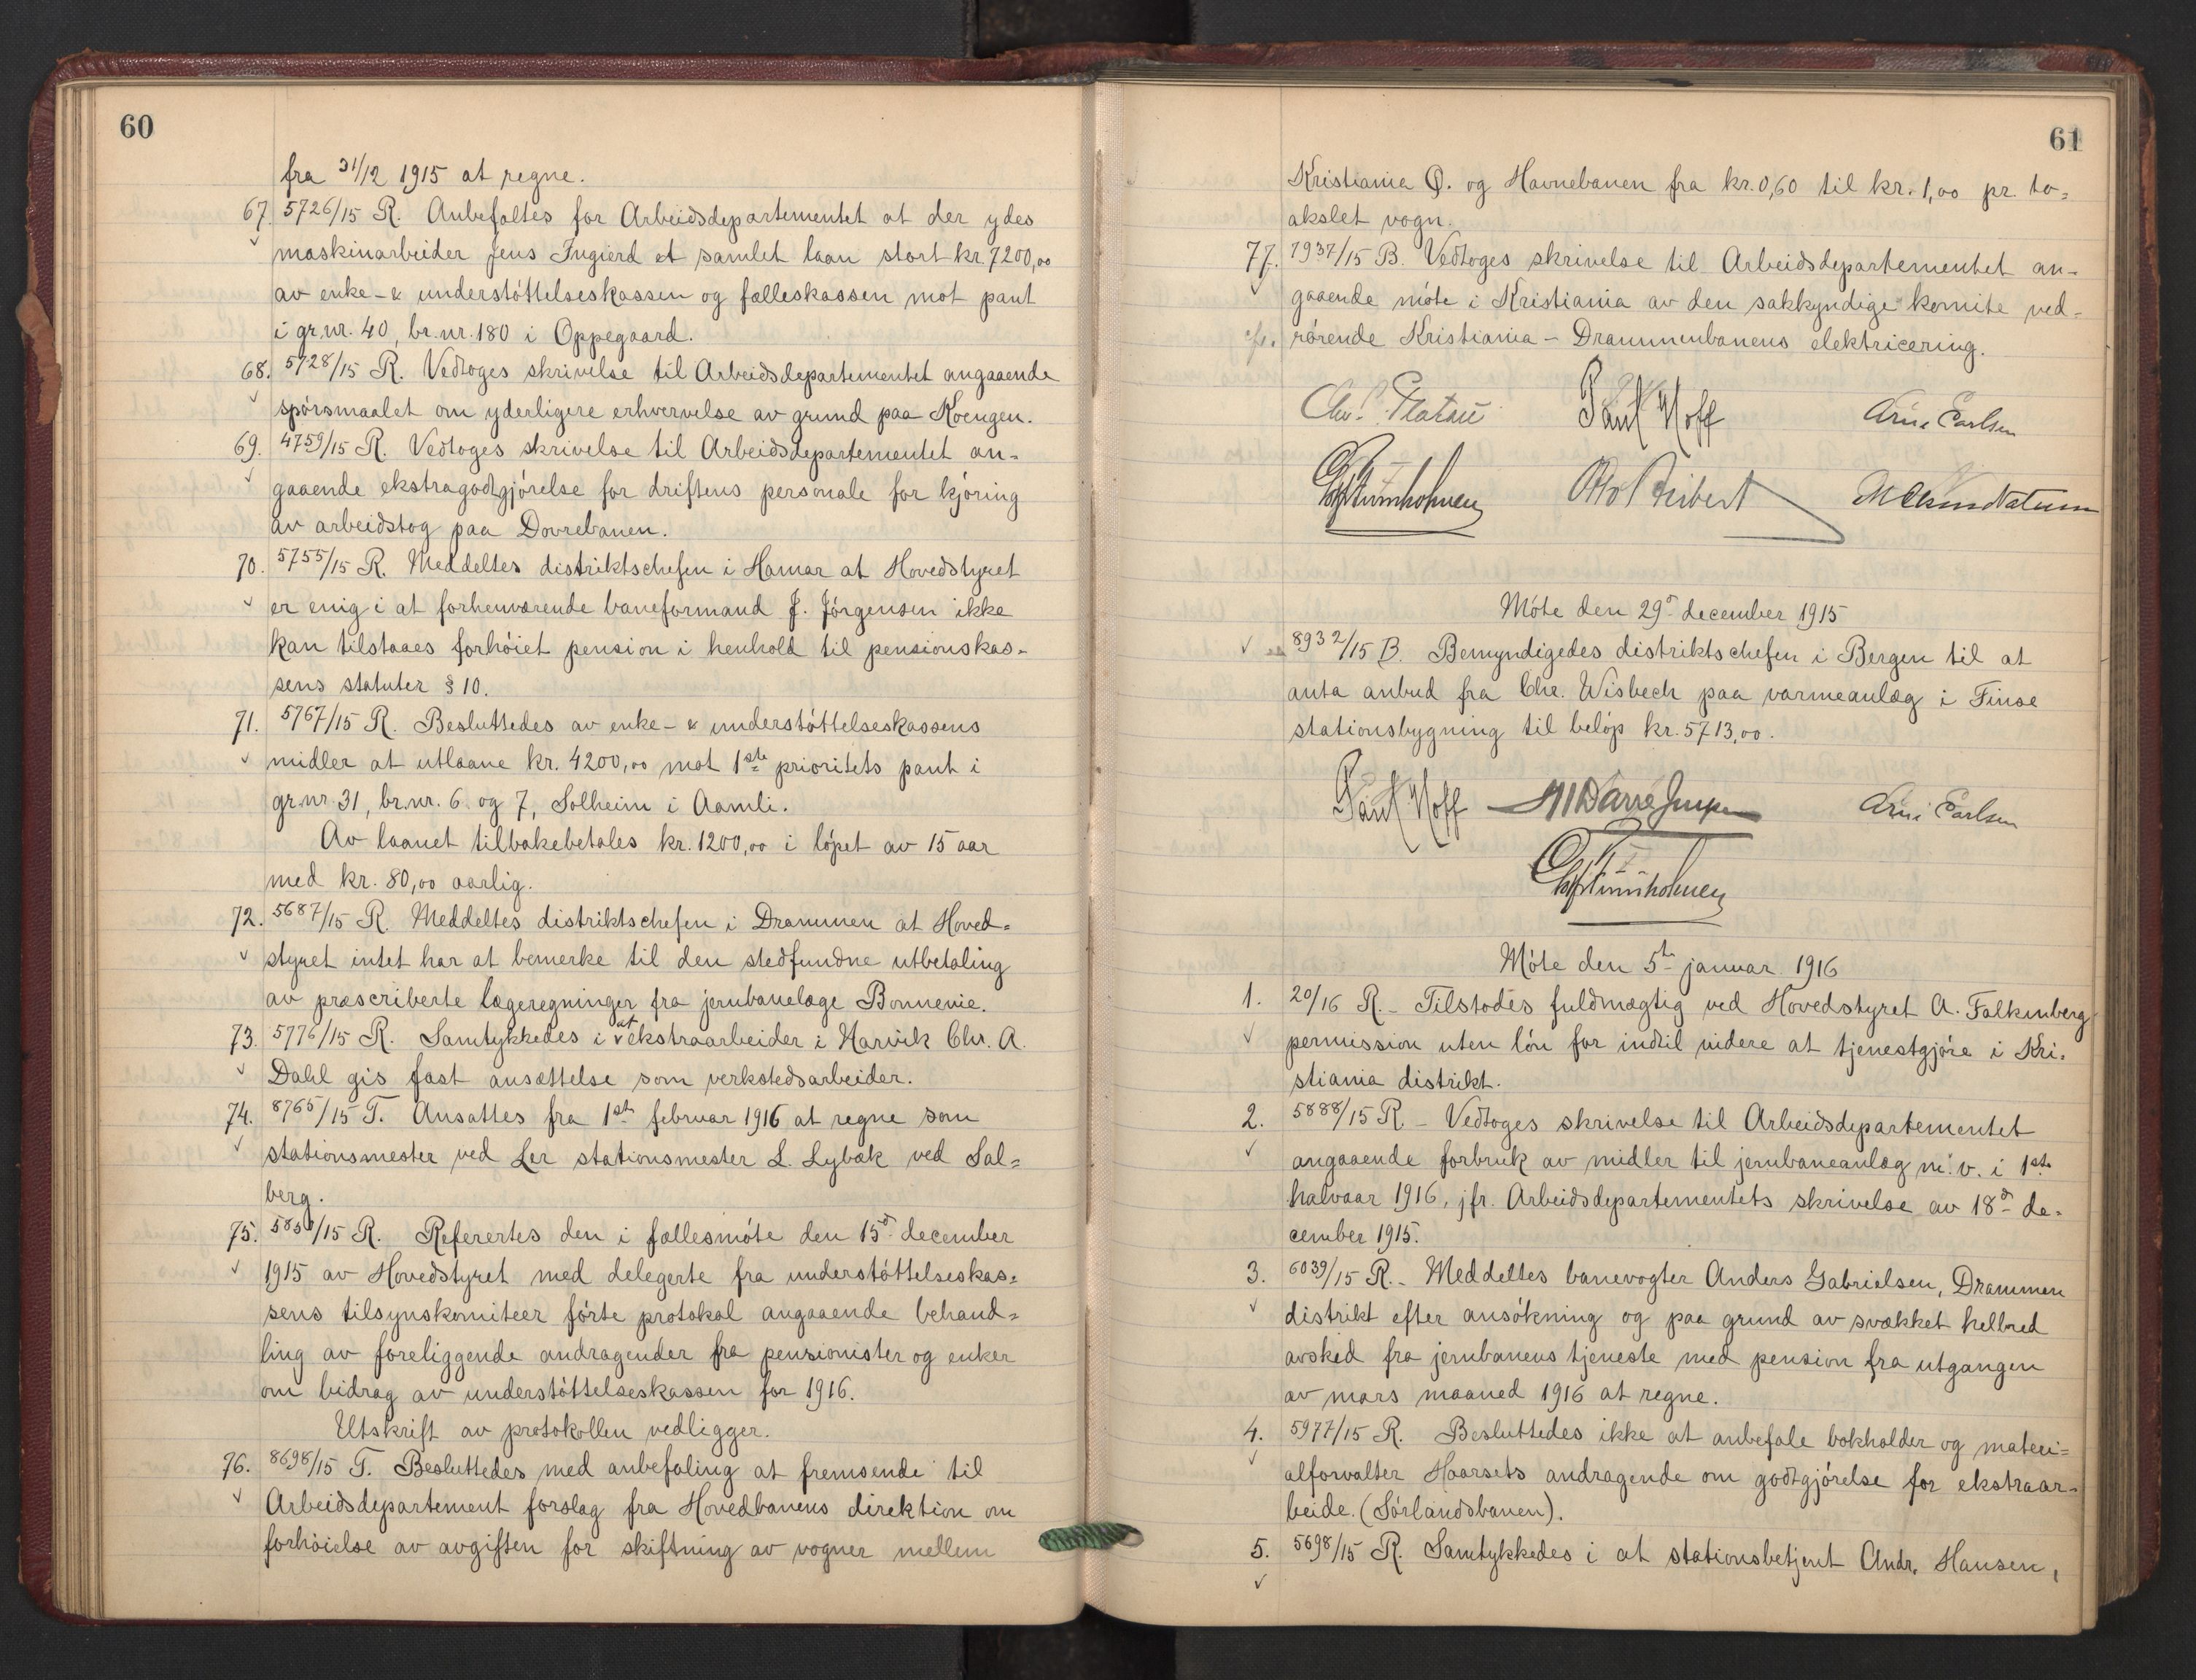 60
fra 31/12 1915 at regne.
67. 5726/15 R. Anbefaltes for Arbeidsdepartementet at der ydes
maskinarbeider Jens Ingierd et samlet laan stort kr. 7200,00
av enke- & understöttelseskassen og fælleskassen mot pant
i gr.nr. 40, br.nr. 180 i Oppegaard.
68. 5728/15 R. Vedtoges skrivelse til Arbeidsdepartementet angaaende
spörsmaalet om yderligere erhvervelse av grund paa Koengen.
69. 4759/15 R. Vedtoges skrivelse til Arbeidsdepartementet an-
gaaende ekstragodtgjörelse for driftens personale for kjöring
av arbeidstog paa Dovrebanen.
70. 5755/15 R. Meddeltes distriktschefen i Hamar at Hovedstyret
er enig i at forhenværende baneformand J. Jörgensen ikke
kan tilstaaes forhöiet pension i henhold til pensionskas-
sens statuter § 10.
71. 5767/15 R. Besluttedes av enke- & understöttelseskassens
midler at utlaane kr. 4200,00 mot 1ste prioritets pant i
gr.nr. 31, br.nr. 6 og 7, Solheim i Aamli.
Av laanet tilbakebetales kr. 1200,00 i löpet av 15 aar
med kr. 80,00 aarlig.
72. 5687/15 R. Meddeltes distriktschefen i Drammen at Hoved-
styret intet har at bemerke til den stedfundne utbetaling
av præscriberte lægeregninger fra jernbanelæge Bonnevie.
73. 5776/15 R. Samtykkedes i at ekstraarbeider i Narvik Chr. A.
Dahl gis fast ansættelse som verkstedsarbeider.
74. 8765/15 T. Ansattes fra 1ste februar 1916 at regne som
stationsmester ved Ler stationsmester L. Lybæk ved Sal-
berg.
75. /15 R. Referertes den i fællesmöte den 15de december
1915 av Hovedstyret med delegerte fra understöttelseskas-
sens tilsynskomiteer förte protokol angaaende behand-
ling av foreliggende andragender fra pensionister og enker
om bidrag av understöttelseskassen for 1916.
Utskrift av protokollen vedligger.
76. 8698/15 T. Besluttedes med anbefaling at fremsende til
Arbeidsdepartement forslag fra Hovedbanens direktion om
forhöielse av avgiften for skiftning av vogner mellem
61
Kristiania Ö. og Havnebanen fra kr. 0,60 til kr. 1,00 pr. to-
akslet vogn.
77. 7937/15 B. Vedtoges skrivelse til Arbeidsdepartementet an-
gaaende möte i Kristiania av den sakkyndige komite ved-
rörende Kristiania - Drammenbanens elektricering.
Chr. Platou Paul Hoff Arne Carlsen
Möte den 29de december 1915
8932/15 B. Bemyndigedes distriktschefen i Bergen til at
anta anbud fra Chr. Wisbech paa varmeanlæg i Finse
stationsbygning til belöp kr. 5713,00.
Paul Hoff Arne Carlsen
Möte den 5te januar 1916
1. 20/16 R. - Tilstodes fuldmægtig ved Hovedstyret A. Falkenberg
permission uten lön for indtil videre at tjenestgjöre i Kri-
stiania distrikt.
2. 5888/15 R - Vedtoges skrivelse til Arbeidsdepartementet
angaaende forbruk av midler til jernbaneanlæg m. v. i 1ste
halvaar 1916, jfr. Arbeidsdepartementets skrivelse av 18de de-
cember 1915.
3. 6039/15 R. - Meddeltes banevogter Anders Gabrielsen, Drammen
distrikt efter ansökning og paa grund av svækket helbred
avsked fra jernbanens tjeneste med pension fra utgangen
av mars maaned 1916 at regne.
4. 5977/15 R. Besluttedes ikke at anbefale bokholder og materi-
alforvalter Haarsets andragende om godtgjörelse for ekstraar-
beide. (Sörlandsbanen).
5. 5698/15 R. Samtykkedes i at stationsbetjent Andr. Hansen,